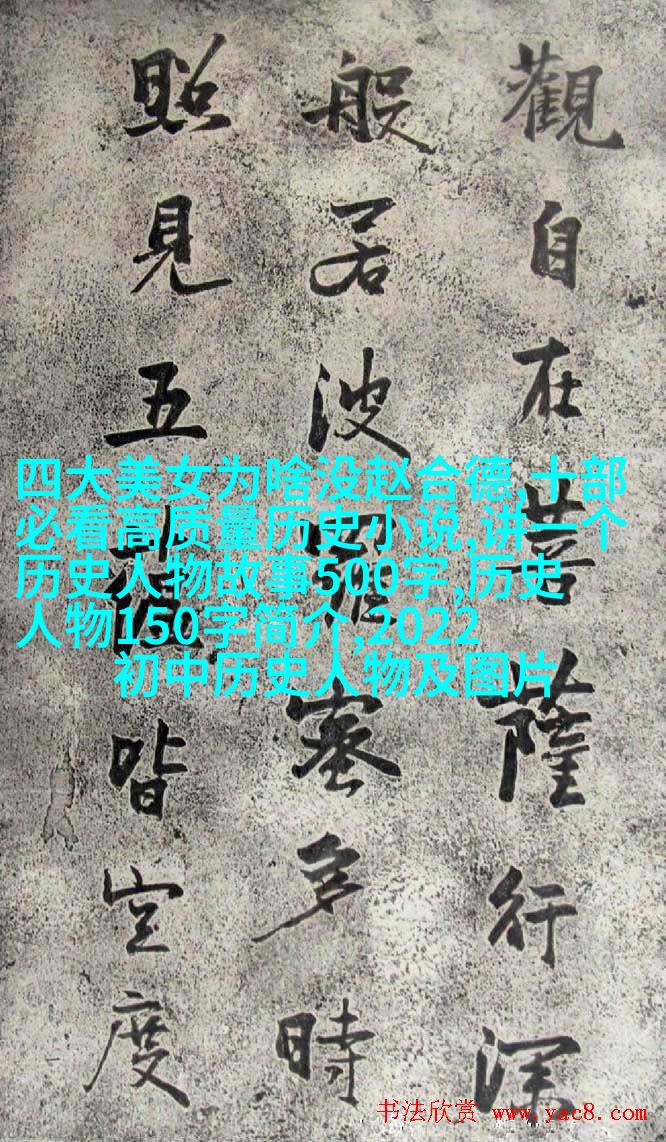 觀自在菩薩行深
般若波羅蜜多時
照見五蘊皆空度
四大美女为啥没赵合德,十部
必看高质量历史小说,讲一个
历史人物故事500字,历史
人物150字简介,2022
初中历史人物及图片
书法欣赏 www.yac8.com